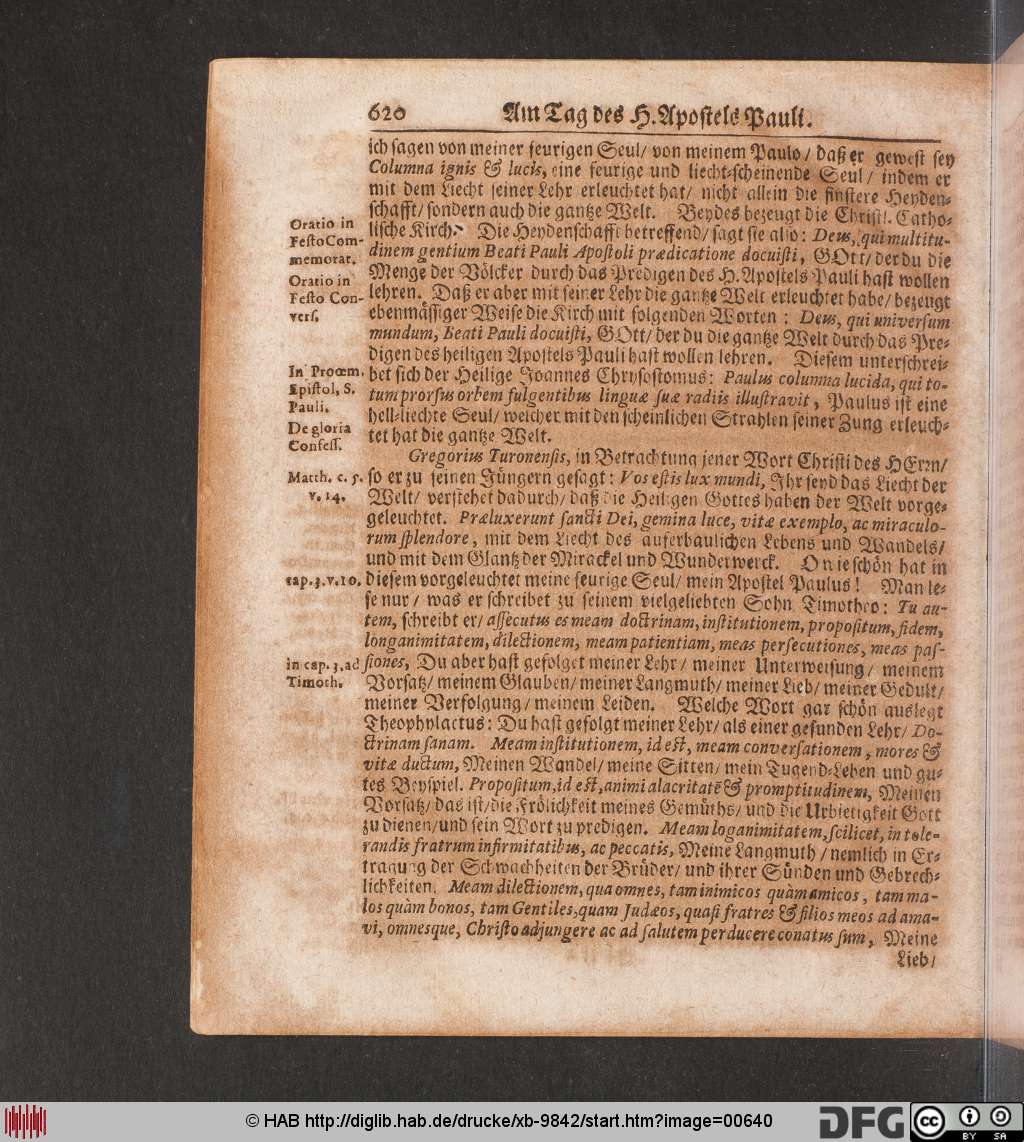 620 Am Tag des H. Apostels Pauli.
ich sagen von meiner feurigen Seul/ von meinem Paulo/ daß er gewest sey
Columna ignis & lucis, eine feurige und liecht-scheinende Seul/ indem er
mit dem Liecht seiner Lehr erleuchtet hat/ nicht allein die finstere Heyden-
schafft/ sondern auch die gantze Welt. Beydes bezeugt die Christl. Catho-
lische Kirch. Die Heydenschafft betreffend/ sagt sie also: Deus, qui multitu-
dinem gentium Beati Pauli Apostoli prædicatione docuisti, GOtt/ der du die
Menge der Völcker durch das Predigen des H. Apostels Pauli hast wollen
lehren. Daß er aber mit seiner Lehr die gantze Welt erleuchtet habe/ bezeugt
ebenmässiger Weise die Kirch mit folgenden Worten: Deus, qui universum
mundum, Beati Pauli docuisti, GOtt/ der du die gantze Welt durch das Pre-
digen des heiligen Apostels Pauli hast wollen lehren. Diesem unterschrei-
bet sich der Heilige Joannes Chrysostomus: Paulus columna lucida, qui to-
tum prorsus orbem fulgentibus linguæ suæ radiis illustravit, Paulus ist eine
hell-liechte Seul/ welcher mit den scheinlichen Strahlen seiner Zung erleuch-
tet hat die gantze Welt.
Gregorius Turonensis, in Betrachtung jener Wort Christi des HErrn/
so er zu seinen Jüngern gesagt: Vos estis lux mundi, Ihr seyd das Liecht der
Welt/ verstehet dadurch/ daß die Heiligen Gottes haben der Welt vorge-
geleuchtet. Præluxerunt sancti Dei, gemina luce, vitæ exemplo, ac miraculo-
rum splendore, mit dem Liecht des auferbaulichen Lebens und Wandels/
und mit dem Glantz der Mirackel und Wunderwerck. O wie schön hat in
diesem vorgeleuchtet meine feurige Seul/ mein Apostel Paulus! Man le-
se nur/ was er schreibet zu seinem vielgeliebten Sohn Timotheo: Tu au-
tem, schreibt er/ assecutus es meam doctrinam, institutionem, propositum, fidem,
longanimitatem, dilectionem, meam patientiam, meas persecutiones, meas pas-
siones, Du aber hast gefolget meiner Lehr/ meiner Unterweisung/ meinem
Vorsatz/ meinem Glauben/ meiner Langmuth/ meiner Lieb/ meiner Gedult/
meiner Verfolgung/ meinem Leiden. Welche Wort gar schön auslegt
Theophylactus: Du hast gefolgt meiner Lehr/ als einer gesunden Lehr/ Do-
ctrinam sanam. Meam institutionem, id est, meam conversationem, mores &
vitæ ductum, Meinen Wandel/ meine Sitten/ mein Tugend-Leben und gu-
tes Beyspiel. Propositum, id est, animi alacritatē & promptitudinem, Meinen
Vorsatz/ das ist/ die Frölichkeit meines Gemüths/ und die Urbietigkeit Gott
zu dienen/ und sein Wort zu predigen. Meam loganimitatem, scilicet, in tole-
randis fratrum infirmitatibus, ac peccatis, Meine Langmuth/ nemlich in Er-
tragung der Schwachheiten der Brüder/ und ihrer Sünden und Gebrech-
lichkeiten. Meam dilectionem, qua omnes, tam inimicos quàm amicos, tam ma-
los quàm bonos, tam Gentiles, quam Judæos, quasi fratres & filios meos ad ama-
vi, omnesque, Christo adjungere ac ad salutem perducere conatus sum, Meine
Lieb/
Oratio in
Festo Com-
memorat.
Oratio in
Festo Con-
vers.
In Proœm.
Epistol. S.
Pauli.
De gloria
Confess.
Matth. c. 5.
v. 14.
cap. 3. v. 10.
in cap. 3. ad
Timoth.
© HAB http://diglib.hab.de/drucke/xb-9842/start.htm?image=00640
DFG
cc
BY SA